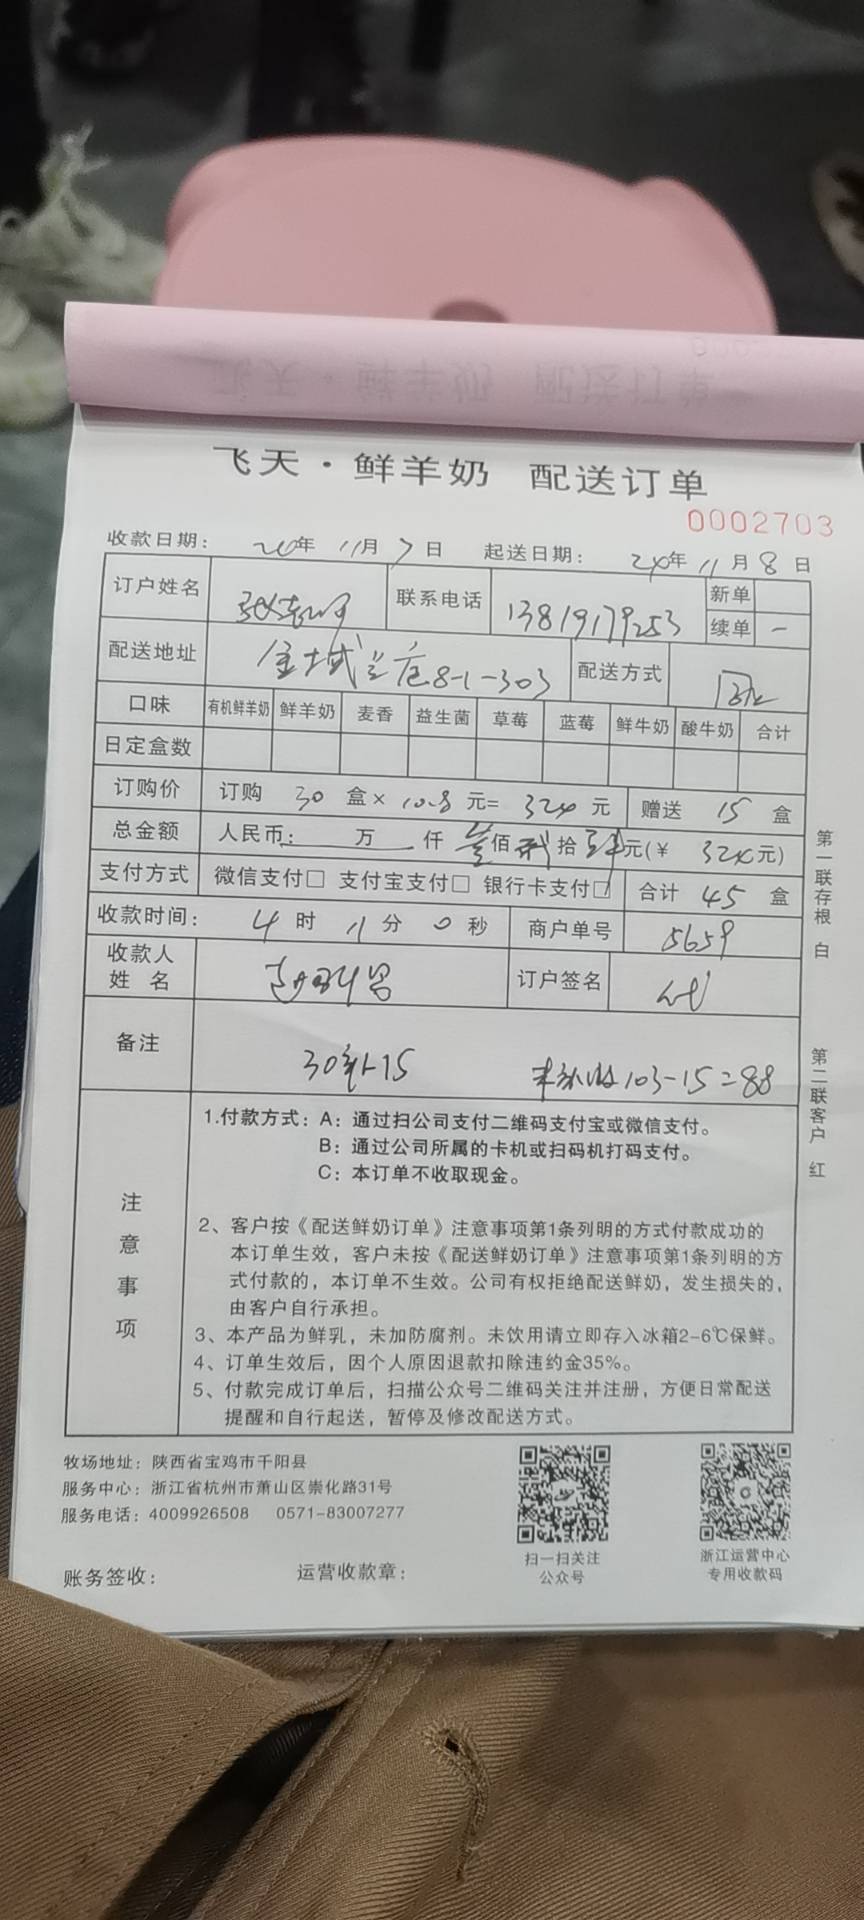 飞天·鲜羊奶 配送订单
0002703
收款日期： 20年 11月 7日 起送日期： 24年 11月 8日
订户姓名 联系电话 13819179253 新单
续单 一
配送地址 金域兰庭8-1-303 配送方式
口味 有机鲜羊奶 鲜羊奶 麦香 益生菌 草莓 蓝莓 鲜牛奶 酸牛奶 合计
日定盒数
订购价 订购 30 盒× 10.8 元= 324 元 赠送 15 盒
总金额 人民币： 万 仟 佰 拾 元(¥ 324元)
支付方式 微信支付□ 支付宝支付□ 银行卡支付□ 合计 45 盒
收款时间： 4 时 11分 0秒 商户单号 5659
收款人
姓 名 订户签名 代
备注 30 15 103-15=88
注意事项
1.付款方式：A：通过扫公司支付二维码支付宝或微信支付。
B：通过公司所属的卡机或扫码机打码支付。
C：本订单不收取现金。
2、客户按《配送鲜奶订单》注意事项第1条列明的方式付款成功的
本订单生效，客户未按《配送鲜奶订单》注意事项第1条列明的方
式付款的，本订单不生效。公司有权拒绝配送鲜奶，发生损失的，
由客户自行承担。
3、本产品为鲜乳，未加防腐剂。未饮用请立即存入冰箱2-6℃保鲜。
4、订单生效后，因个人原因退款扣除违约金35%。
5、付款完成订单后，扫描公众号二维码关注并注册，方便日常配送
提醒和自行起送，暂停及修改配送方式。
第一联存根 白
第二联客户 红
牧场地址：陕西省宝鸡市千阳县
服务中心：浙江省杭州市萧山区崇化路31号
服务电话：4009926508 0571-83007277
扫一扫关注
公众号
浙江运营中心
专用收款码
账务签收： 运营收款章：